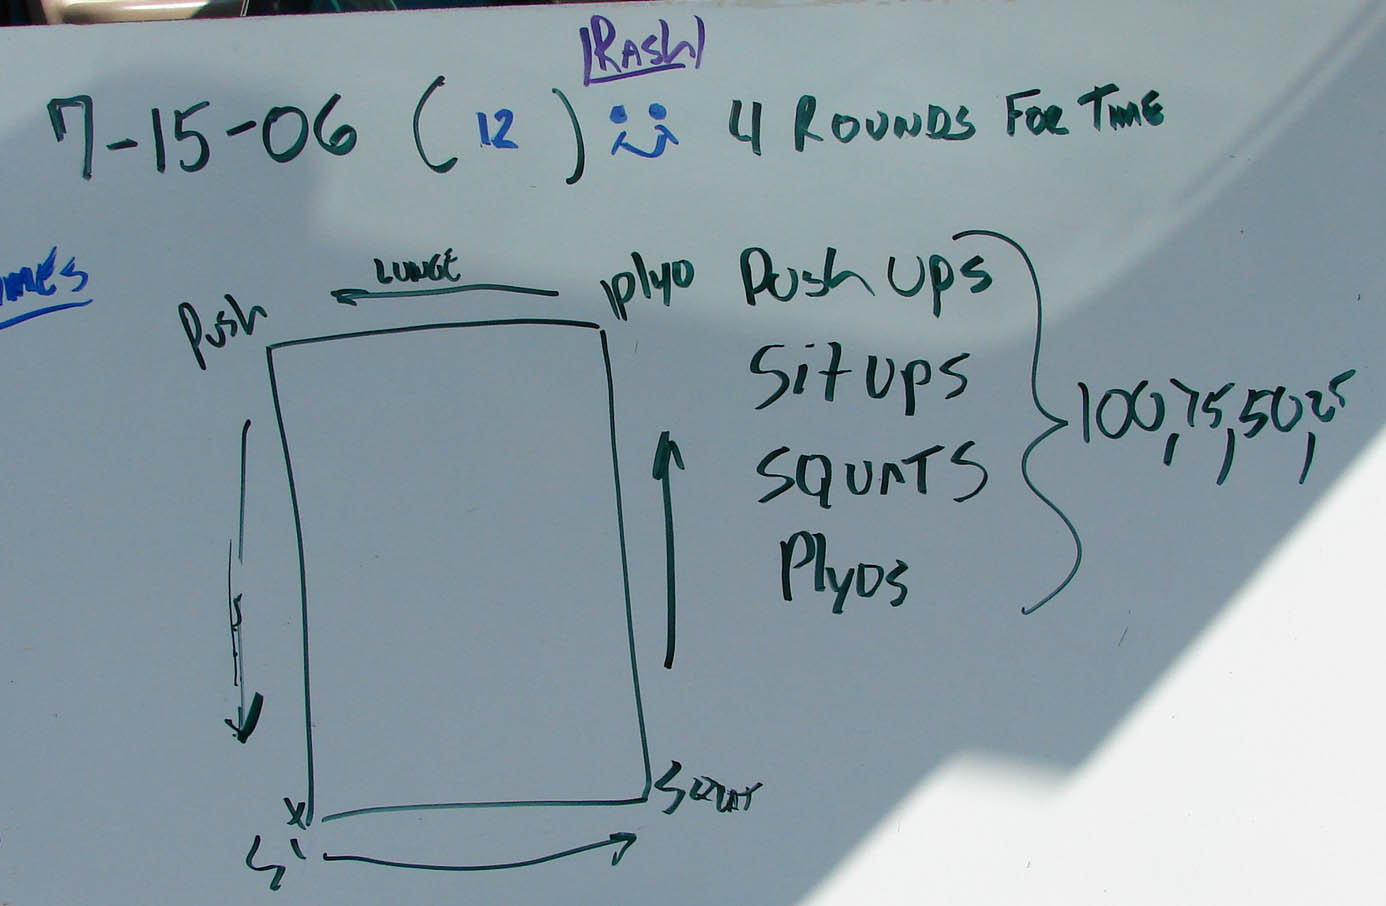 RASH
7-15-06 (12) 4 ROUNDS FOR TIME
LUNGE
Push
plyo
Push Ups
Sit Ups
SQUATS
Plyos
100, 75, 50, 25
X
SQUAT